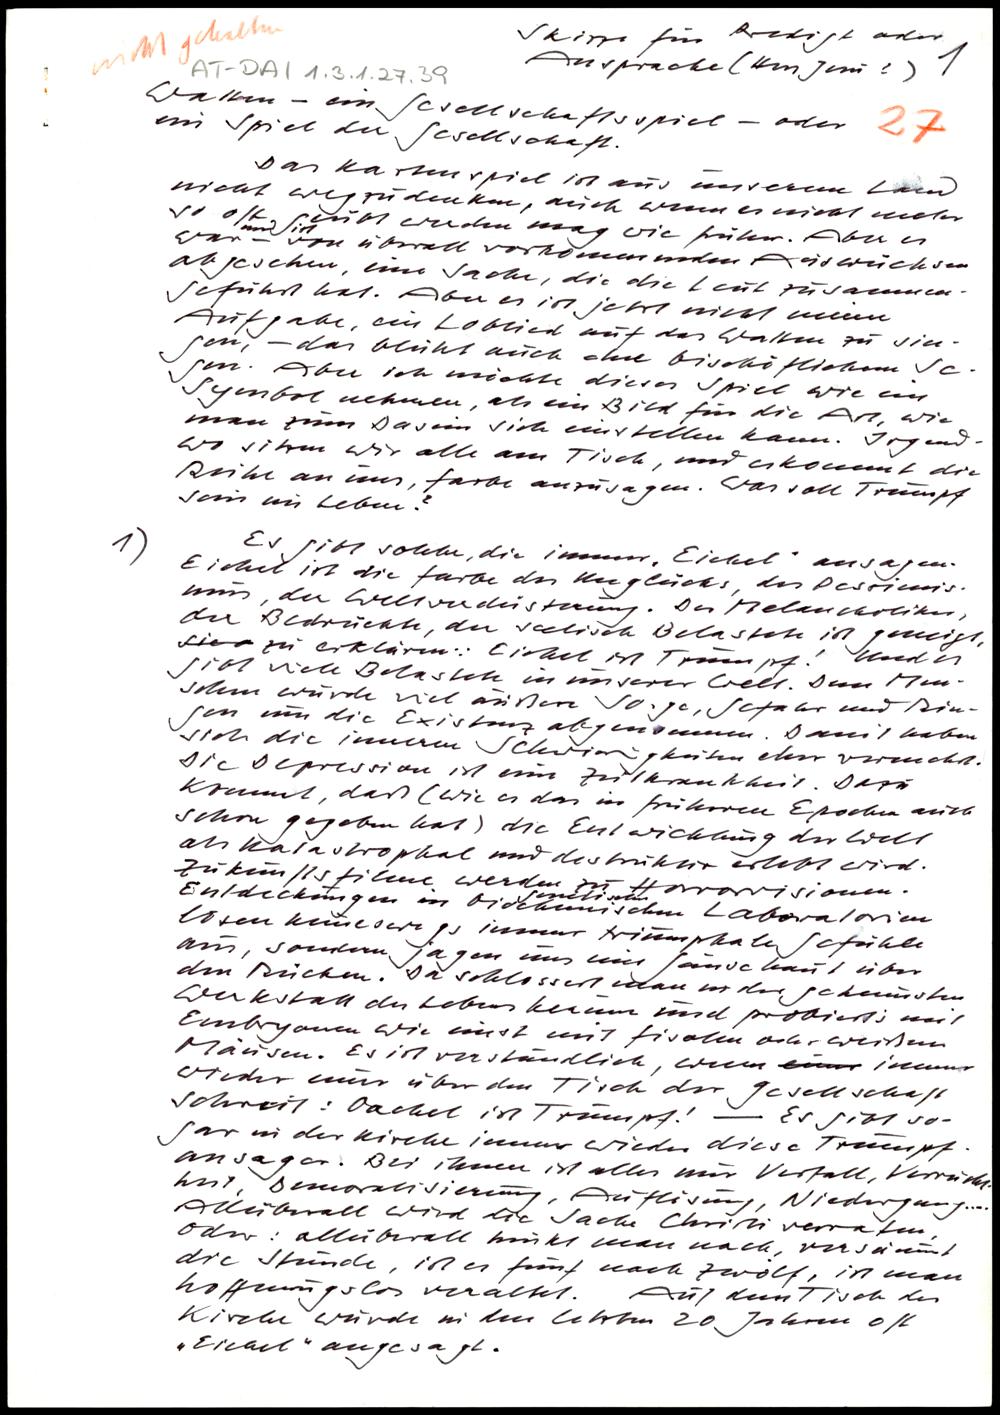 nicht gehalten
Skizze für Predigt oder
Ansprache ( ) 1
AT-DAI 1.3.1.27.39
27
Watten – ein Gesellschaftsspiel – oder
ein Spiel der Gesellschaft.
Das Kartenspiel ist aus unserem Land
nicht wegzudenken, auch wenn es nicht mehr
so oft geübt werden mag wie früher. Aber es
war – und ist von überall vorkommenden Auswüchsen
abgesehen, eine Sache, die die Leut zusammen-
geführt hat. Aber es ist jetzt nicht meine
Aufgabe, ein Loblied auf das Watten zu sin-
gen, – das blüht auch ohne bischöflichem Se-
gen. Aber ich möchte dieses Spiel wie ein
Symbol nehmen, als ein Bild für die Art, wie
man zum Dasein sich einstellen kann. Irgend-
wo sitzen wir alle am Tisch, und es kommt die
Reihe an uns, Farbe anzusagen. Was soll Trumpf
sein im Leben?
1) Es gibt solche, die immer „Eichel" ansagen.
Eichel ist die Farbe des Unglücks, des Pessimis-
mus, der Weltverdüsterung. Der Melancholiker,
der Bedrückte, der seelisch Belastete ist geneigt,
zu erklären: Eichel ist Trumpf! Und es
gibt viele Belastete in unserer Welt. Dem Men-
schen wurde viel äußere Sorge, Gefahr und Rin-
gen um die Existenz abgenommen. Damit haben
sich die inneren Schwierigkeiten eher vermehrt.
Die Depression ist eine Zeitkrankheit. Dazu
kommt, daß (wie es das in früheren Epochen auch
schon gegeben hat) die Entwicklung der Welt
als katastrophal und destruktiv erlebt wird.
Zukunftsfilme werden zu Horrorvisionen.
Entdeckungen in biochemischen genetischen Laboratorien
lösen keineswegs immer triumphale Gefühle
aus, sondern jagen uns eine Gänsehaut über
den Rücken. Da schlossert man in der geheimsten
Werkstatt des Lebens herum und probiert's mit
Embryonen wie einst mit Fisolen oder weißen
Mäusen. Es ist verständlich, wenn immer
wieder einer über den Tisch der Gesellschaft
schreit: Eichel ist Trumpf! — Es gibt so-
gar in der Kirche immer wieder diese Trumpf-
ansager. Bei ihnen ist alles nur Verfall, Verrückt-
heit, Demoralisierung, Auflösung, Niedergang....
Allüberall wird die Sache Christi verraten,
oder: allüberall hinkt man nach, versäumt
die Stunde, ist es fünf nach zwölf, ist man
hoffnungslos veraltet. Auf dem Tisch der
Kirche wurde in den letzten 20 Jahren oft
„Eichel" angesagt.